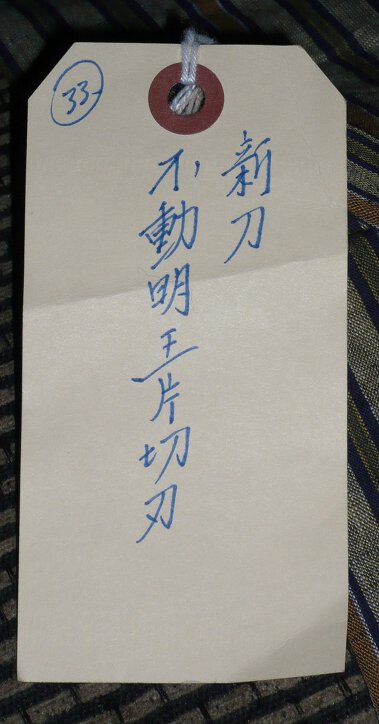 33
新刀
不動明王片切刃